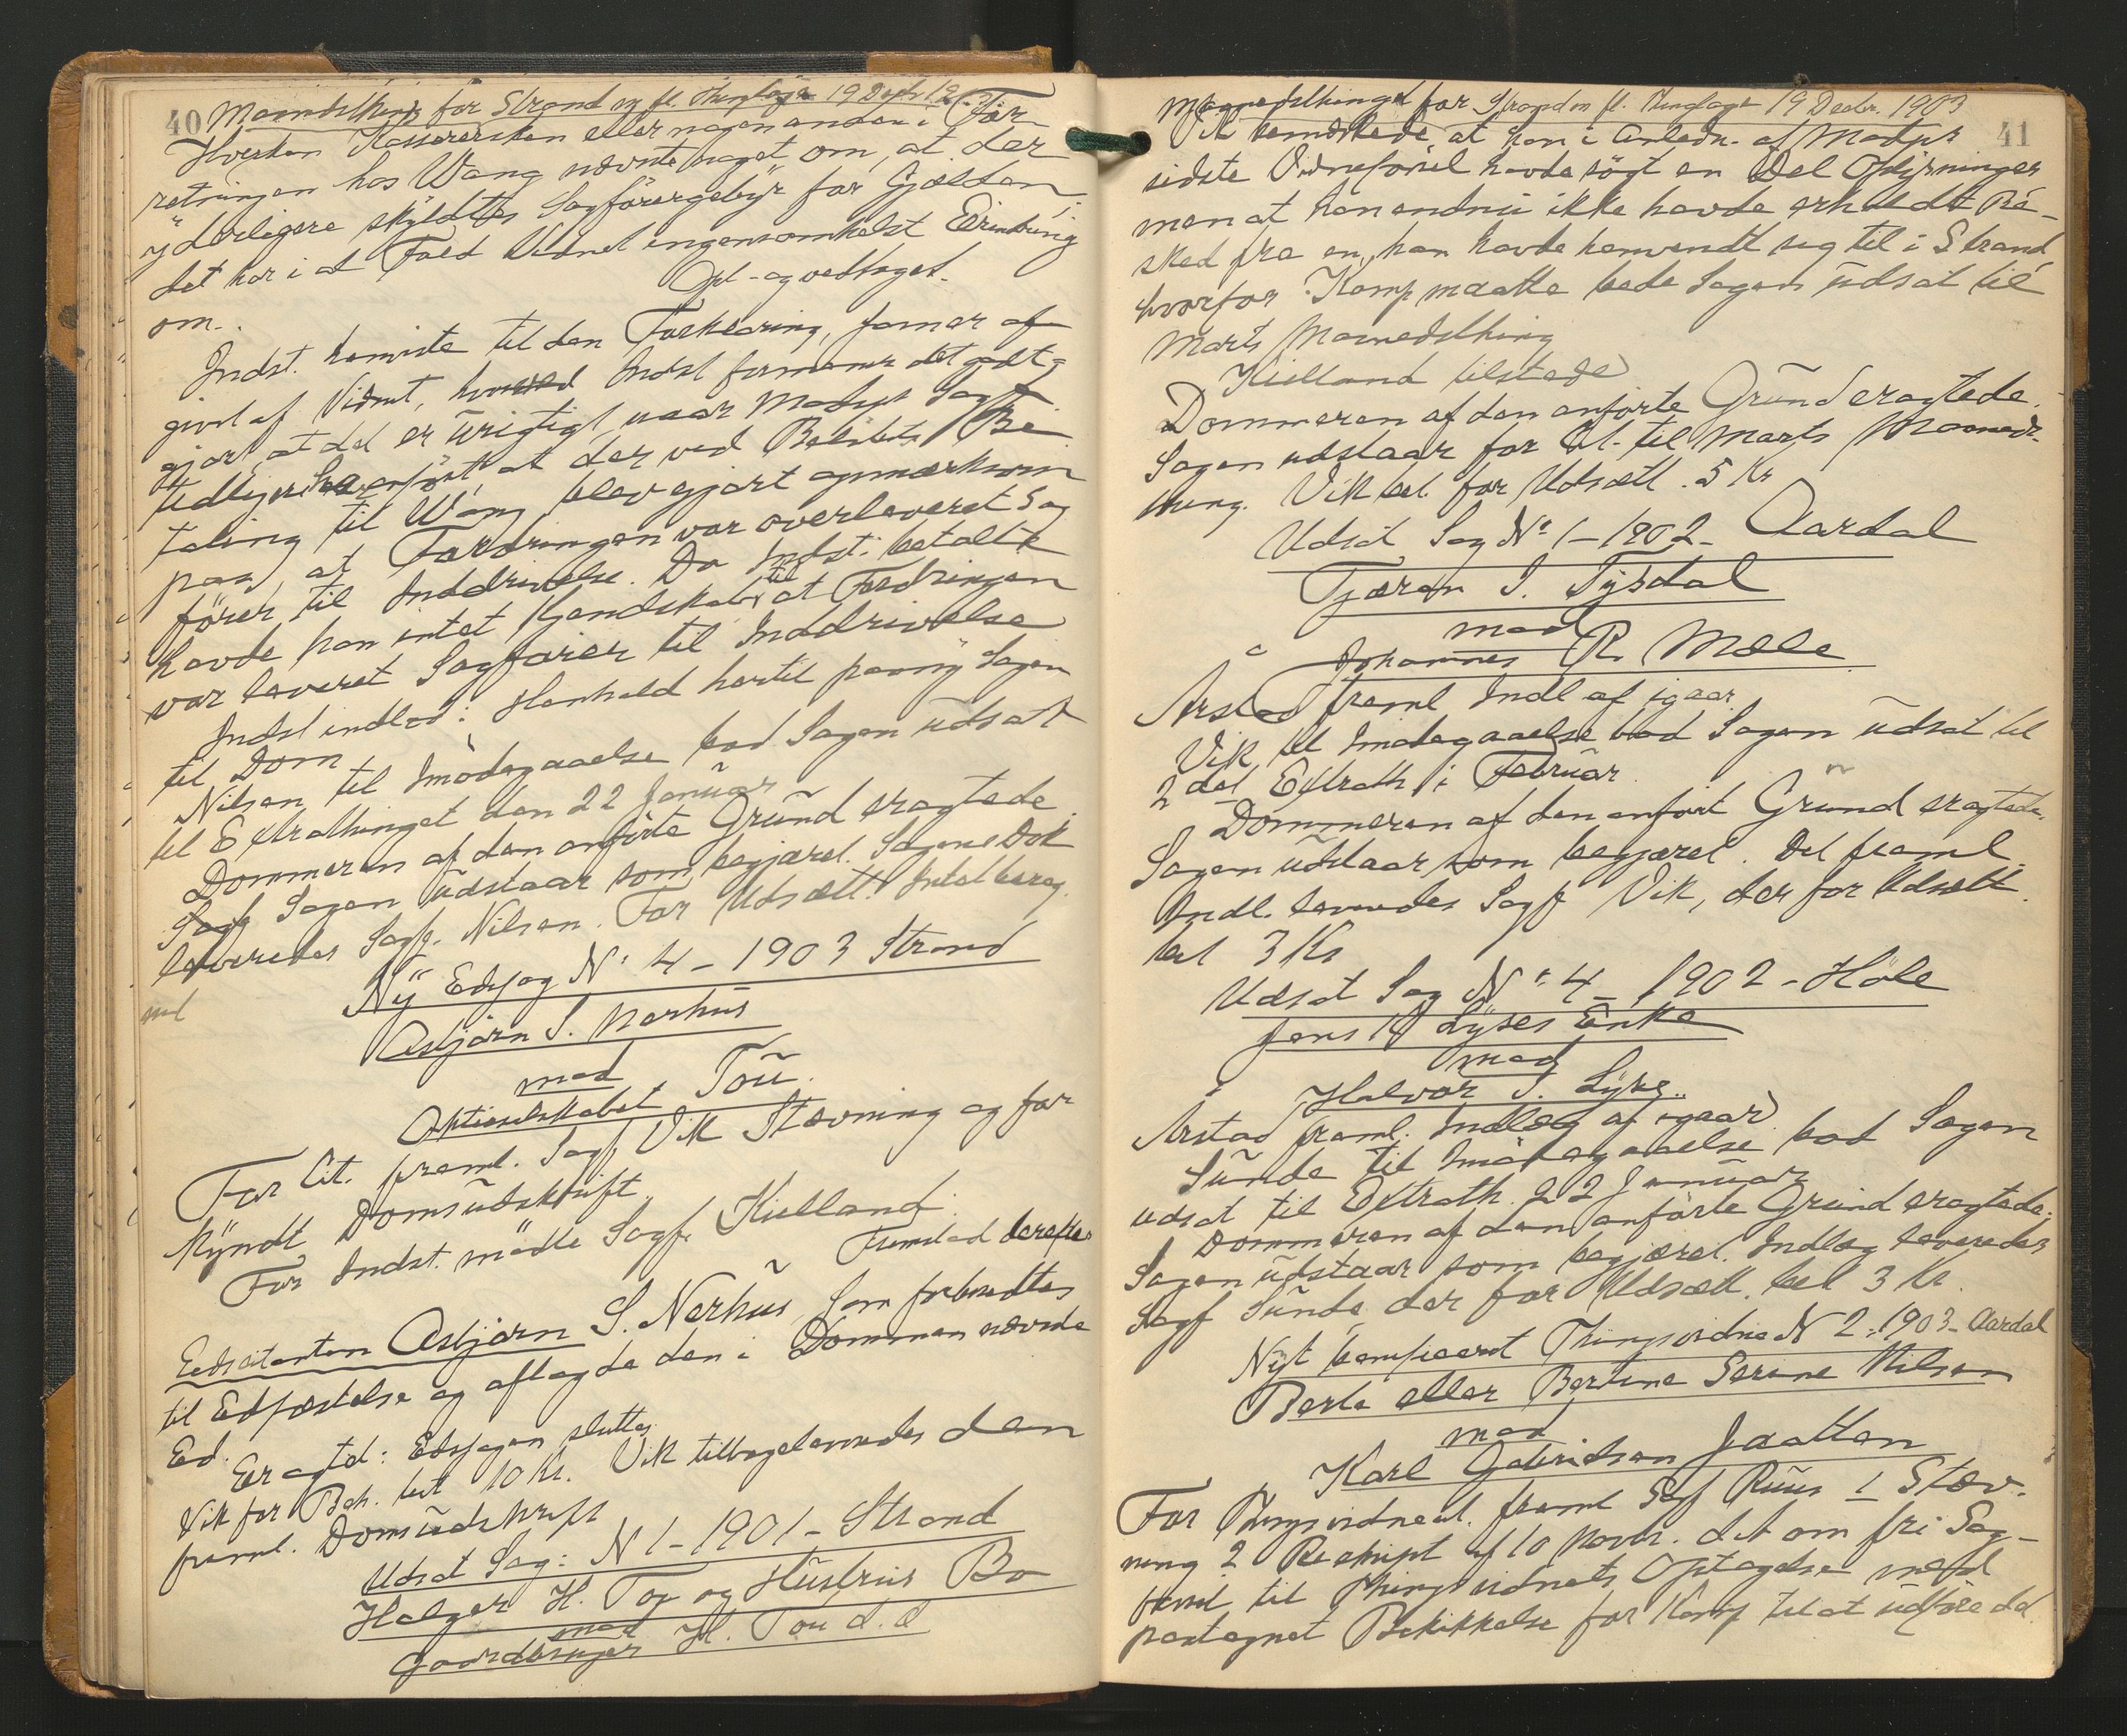 40 Maanedsthing for Strand m. fl. Thinglage 19 Decbr 1903
Hverken Kasserersken eller nogen anden i For-
retningen hos Wang nævnte noget om, at der
yderligere skyldtes Sagförergebyr for Gjælden,
det har i al Fald Vidnet ingensomhelst Erindring
om. Opl- og vedtaget.
Indst. henviste til den Forklaring, som er af
givet af Vidnet, hvorved Indst formener det godt
gjort, at det er ürigtigt, naar Modpt Sagf.
tidligere har anfört, at der ved Belöbets Be
taling til Wang blev gjort opmærksom
paa, at Fordringen var overleveret Sag
förer til Inddrivelse. Da Indst. betalte
havde han intet Kjendskab til at Fordringen
var leveret Sagförer til Inddrivelse
Indst indlod i Henhold hertil paany Sagen
til Dom
Nilsen til Imödegaaelse bad Sagen üdsat
til Extrathinget den 22 Januar
Dommeren af den anförte Gründ eragtede
Sagf Sagen üdstaar som begjæret. Sagens Dok
leveredes Sagf. Nilsen. For Udsætt. Intet bereg.
Ny Edssag No 4 - 1903 Strand
Asbjörn S. Nerhus
mod
Aktieselskabet Toü.
For Cit. freml. Sagf. Vik Stævning og for
kyndt Domsüdskrift
For Indst. mödte Sagf. Kielland.
Fremstod derefter
Edscitanten Asbjörn S. Nerhüs som forberedtes
til Edfæstelse og aflagde den i Dommen nævnte
Ed.
Eragtd: Edssagen sluttes
Vik for Beh. bet 10 Kr. Vik tilbageleveredes den
freml. Domsüdskrift
Udsat Sag: N 1 - 1901 - Strand
Holger H. Tou og Hüstrus Bo
mod
Gaardbruger H. Tou d. æ
Maanedsthinget for Strand m fl. Thinglage 19 Decbr. 1903 41
Vik bemærkede at han i Anledn. af Modpts
sidste Vidneförsel havde sögt en Del Oplysninger
men at han endnu ikke havde erholdt Be-
sked fra en, han havde henvendt sig til i Strand,
hvorfor Komp maatte bede Sagen üdsat til
Marts Maanedsthing
Kielland tilstede
Dommeren af den anförte Gründ eragtede.
Sagen udstaar for Cit. til Marts Maaneds-
thing. Vik bet. for Udsætt. 5 Kr
Udsat Sag No 1 - 1902 - Aardal
Tjæran I. Tysdal
mod
Johannes R. Mæle
Årstad freml Indl af igaar
Vik til Imödegaaelse bad Sagen üdsat til
2det Extrath i Februar
Dommeren af den anfört Gründ eragtede.
Sagen üdstaar som begjæret. Det freml.
Indl. leveredes Sagf Vik, der for Udsætt.
bet 3 Kr
Udsat Sag No 4 - 1902 - Höle
Jens H Lyses Enke
mod
Halvor T. Lyse
Årstad freml. Indlæg af igaar
Sünde til Imödegaaelse bad Sagen
udsat til Extrath. 22 Januar
Dommeren af den anförte Gründ eragtede.
Sagen üdstaar som begjæret. Indlæg leveredes
Sagf Sünde, der for Udsætt. bet 3 Kr.
Nyt beneficeret Thingsvidne N 2 - 1903 - Aardal
Berte eller Bertine Serine Nilsen
mod
Karl Gabrielsen Jaatten
For Thingsvidnecit. freml Sagf Rüus 1 Stæv-
ning 2 Reskript af 10 Novbr. d.A om fri Sag-
försel til Thingsvidnets Optagelse med
paategnet Beskikkelse for Komp til at üdföre det